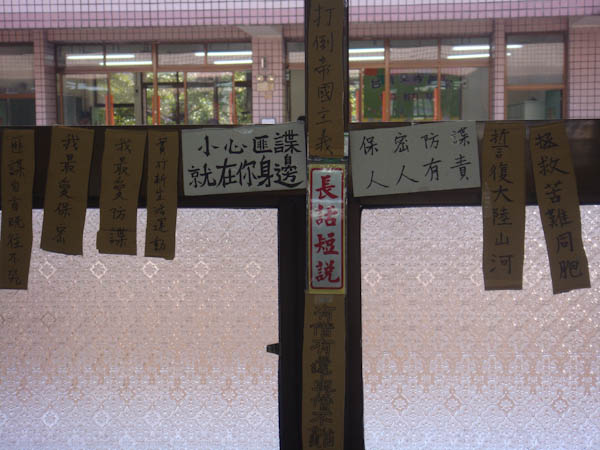 匪諜自首既往不
我最愛保密
我最愛防諜
實行新生活運動
小心匪諜
就在你身邊
打倒帝國主義
長話短說
有借有還再借不難
保密防諜
人人有責
誓復大陸山河
拯救苦難同胞